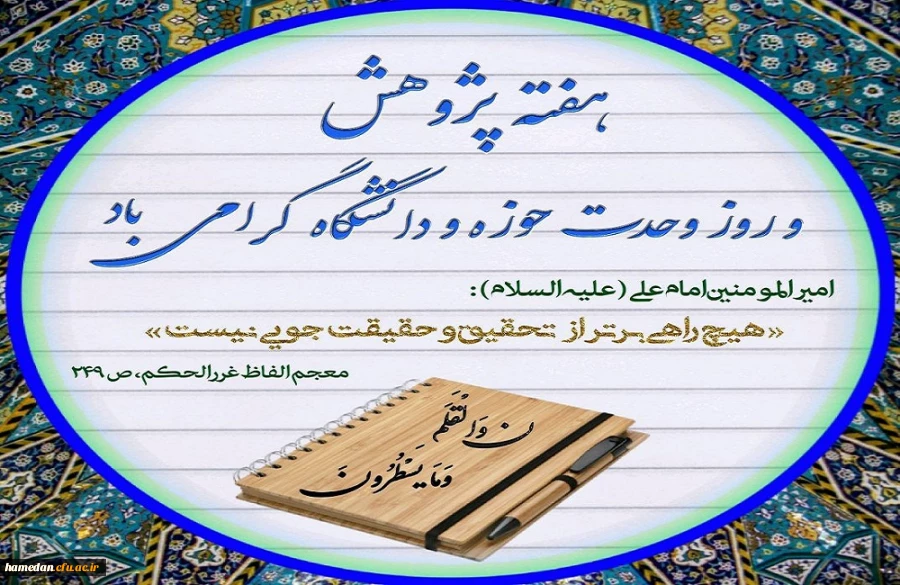 هفته پژوهش
و روز وحدت حوزه و دانشگاه گرامی باد
امیرالمومنین امام علی (علیه السلام):
«هیچ راهی برتر از تحقیق و حقیقت جویی نیست»
معجم الفاظ غررالحکم، ص ۲۴۹
ن وَالْقَلَمِ
وَمَا يَسْطُرُونَ
hamedan.cfu.ac.ir